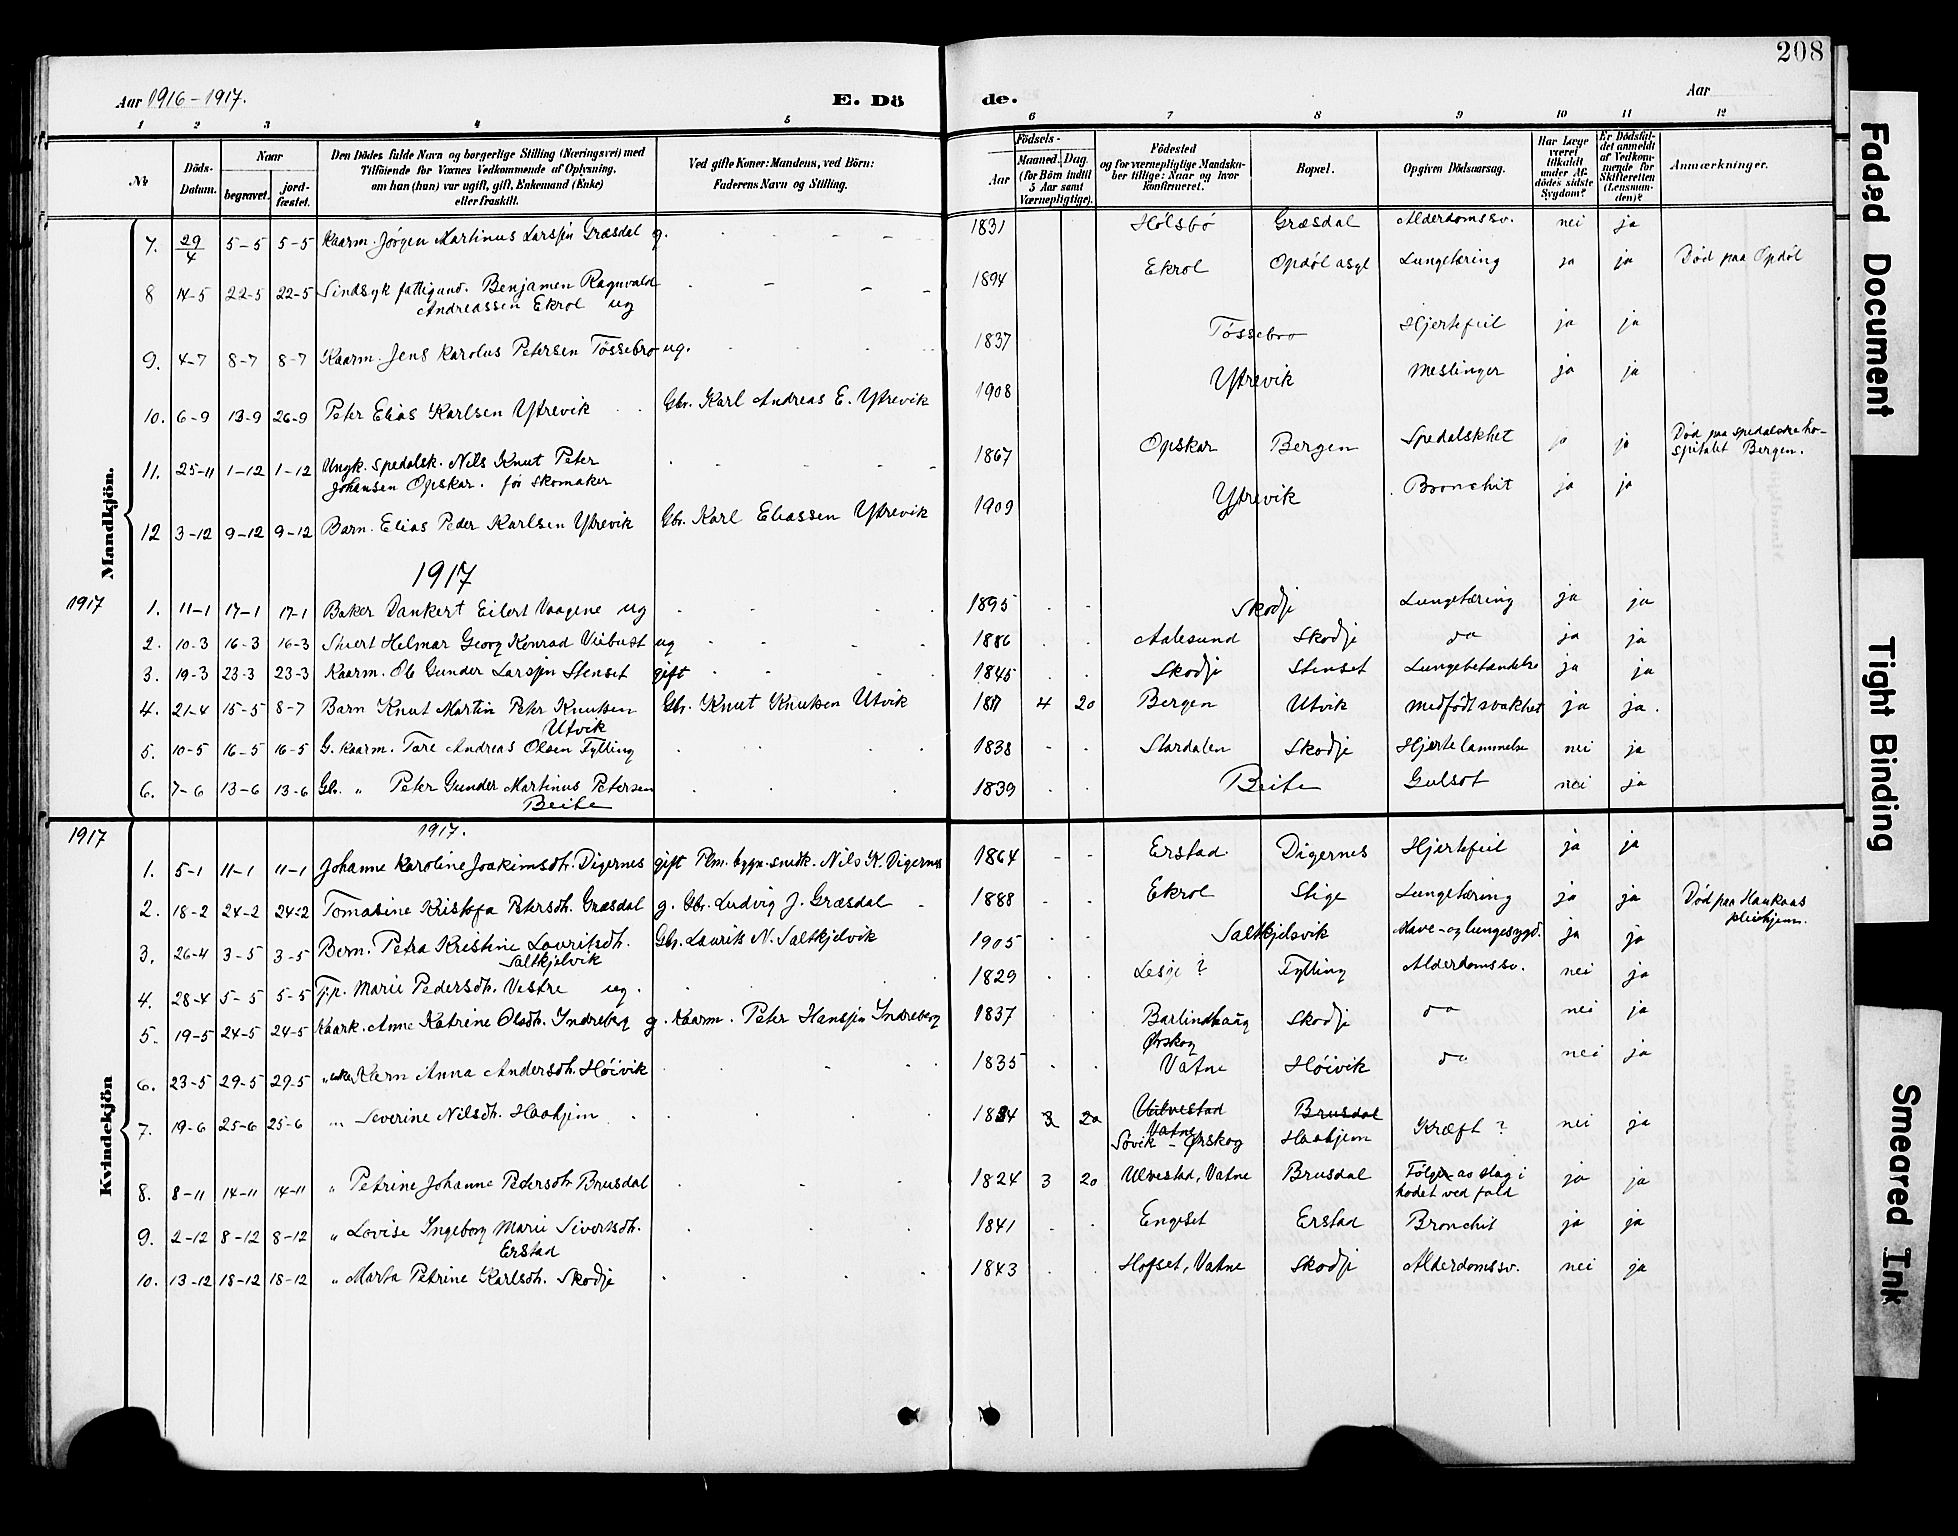 208
Aar 1916-1917.
E. Dö
de.
Aar
1 2 3 4 5 6 7 8 9 10 11 12
No
Döds-Datum.
Naar
begravet.
jord-fæstet.
Den Dödes fulde Navn og borgerlige Stilling (Næringsvei) med
Tilföiende for Voxnes Vedkommende af Oplysning,
om han (hun) var ugift, gift, Enkemand (Enke)
eller fraskilt.
Ved gifte Koner: Mandens, ved Börn:
Faderens Navn og Stilling.
Födsels-
Aar
Maaned. Dag.
(for Börn indtil
5 Aar samt
Værnepligtige).
Födested
og for værnepligtige Mandska-
ber tillige: Naar og hvor
konfirmeret.
Bopæl.
Opgiven Dödsaarsag.
Har Læge
været
tilkaldt
under Af-
dödes sidste
Sygdom?
Er Dödsfal-
det anmeldt
af Vedkom-
mende for
Skifteretten
(Lensman-
den)?
Anmærkninger.
Mandkjön.
7. 29/4 5-5 5-5 Kaarm. Jørgen Martinus Larsen Græsdal g. 1831 Holsbø Græsdal Alderdomssv. nei ja
8 14-5 22-5 22-5 Sindsyk fattigund. Benjamen Ragnvald 1894 Ekrol Opdøl asyl Lungetæring ja ja Død paa Opdøl
Andreassen Ekrol ug
9. 4-7 8-7 8-7 Kaarm. Jens Karolus Petersen Tøssebro ug. 1837 Tøssebro Hjertefeil ja ja
10. 6-9 13-9 26-9 Peter Elias Karlsen Ytrevik Gbr. Karl Andreas E. Ytrevik 1908 Ytrevik Meslinger ja ja
11. 25-11 1-12 1-12 Ungk. spedalsk. Nils Knut Peter 1867 Opskar Bergen Spedalskhet ja ja Død paa spedalske ho-
Johansen Opskar. før skomaker
spitalet Bergen.
12 3-12 9-12 9-12 Barn. Elias Peder Karlsen Ytrevik Gbr. Karl Eliassen Ytrevik 1909 Ytrevik Bronchit ja ja
1917
1917 1. 11-1 17-1 17-1 Baker Dankert Eilert Vaagene ug 1895 Skodje Lungetæring ja ja
2. 10-3 16-3 16-3 Helmar Georg Konrad Viebust ug 1886 Aalesund Skodje do ja ja
3. 19-3 23-3 23-3 Kaarm. Ole Gunder Larsen Stenset gift 1845 Skodje Stenset Lungebetændelse ja ja
4. 21-4 15-5 8-7 Barn Knut Martin Peter Knutsen Gbr. Knut Knutsen Utvik 4 20 Bergen Utvik Medfødt svakhet ja ja.
Utvik
5. 10-5 16-5 16-5 G. kaarm. Tore Andreas Olsen Fylling 1838 Stordalen Skodje Hjertelammelse nei ja
6. 7-6 13-6 13-6 Gbr. " Peter Gunder Martinus Petersen 1839 Beite Gulsot nei ja
Beite
1917
1917.
Kvindekjön
1. 5-1 11-1 11-1 Johanne Karoline Joakimsdh. Digernes gift bygn. snedk. Nils K. Digernes 1864 Erstad Digernes Hjertefeil ja ja
2. 18-2 24-2 24-2 Tomasine Kristofa Petersdh. Græsdal g. Gbr. Ludvig J. Græsdal 1888 Ekrol Stige Lungetæring ja ja Død paa Haukaas
pleiehjem.
3. 26-4 3-5 3-5 Petra Kristine Lauritsdh. Gbr. Laurits N. Saltkjelvik 1905 Saltkjelsvik Mave- og lungesygd. ja ja
Saltkjelvik
4. 28-4 5-5 5-5 Marie Pedersdh. Vestre ug. 1829 Lesje? Fylling Alderdomssv. nei ja
5. 19-5 24-5 24-5 Kaark. Anne Katrine Olsdh. Indreberg g. Kaarm. Peter Hansen Indreberg 1837 Barlindhaug Skodje do nei ja
Ørskog
6. 23-5 29-5 29-5 Karn Anna Andersdh. Høivik 1835 Vatne Høivik do nei ja
7. 19-6 25-6 25-6 " Severine Nilsdh. Haahjem 1834 3 20 Ulvestad Brusdal Kræft? nei ja
Vatne
Søvik - Ørskog Haahjem
8. 8-11 14-11 14-11 " Petrine Johanne Pedersdh. Brusdal 1824 3 20 Ulvestad, Vatne Brusdal Følgen av slag i ja ja
hodet ved fald
9. 2-12 8-12 8-12 " Lovise Ingeborg Marie Sivertsdh. 1841 Engeset Erstad Bronchit ja ja
Erstad
10. 13-12 18-12 18-12 " Marta Petrine Karlsdh. Skodje 1843 Hofset, Vatne Skodje Alderdomssv. nei ja
Faded Document
Tight Binding
Smeared Ink